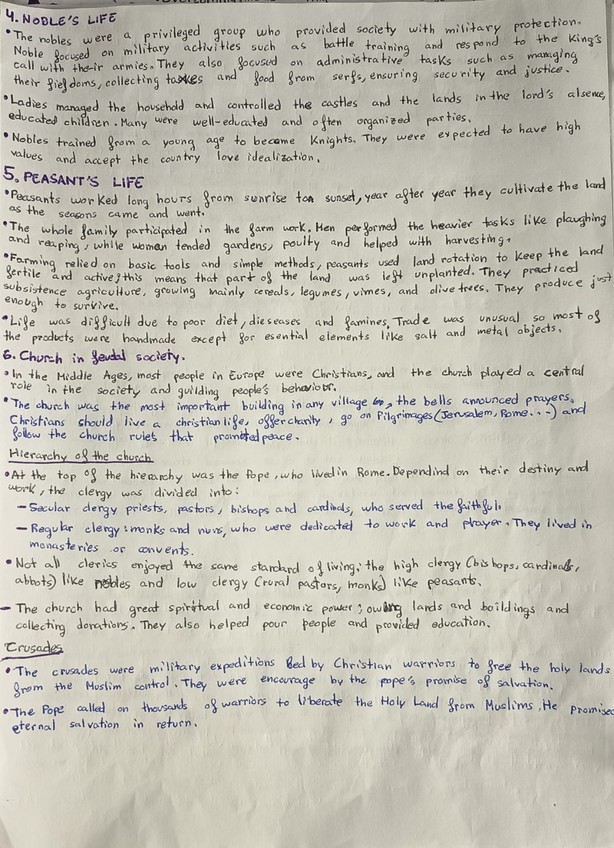 4. NOBLE'S LIFE
• The nobles were a privileged group who provided society with military protection.
Noble focused on military activities such as battle training and respond to the King's
call with their armies. They also focused on administrative tasks such as managing
their fiefdoms, collecting taxes and food from serfs, ensuring security and justice.
• Ladies managed the household and controlled the castles and the lands in the lord's absence,
educated children. Many were well-educated and often organized parties.
• Nobles trained from a young age to become Knights. They were expected to have high
values and accept the country love idealization.
5. PEASANT'S LIFE
• Peasants worked long hours from sunrise to sunset, year after year they cultivate the land
as the seasons came and went.
• The whole family participated in the farm work. Men performed the heavier tasks like plaughing
and reaping, while women tended gardens, poulty and helped with harvesting.
• Farming relied on basic tools and simple methods, peasants used land rotation to keep the land
fertile and active; this means that part of the land was left unplanted. They practiced
subsistence agriculture, growing mainly cereals, legumes, vimes, and olive trees. They produce just
enough to survive.
• Life was difficult due to poor diet, dieseases and famines. Trade was unusual so most of
the products were handmade except for esential elements like salt and metal objects.
6. Church in feudal society.
• In the Middle Ages, most people in Europe were Christians, and the church played a central
role in the society and guilding people's behavior.
• The church was the most important building in any village, the bells announced prayers.
Christians should live a christian life, offer charity, go on Pilgrimages (Jerusalem, Rome...) and
follow the church rules that promoted peace.
Hierarchy of the church
• At the top of the hierarchy was the Pope, who lived in Rome. Dependind on their destiny and
work, the clergy was divided into:
— Secular clergy priests, pastors, bishops and cardinals, who served the faithful.
— Regular clergy: monks and nuns, who were dedicated to work and prayer. They lived in
monasteries or convents.
• Not all clerics enjoyed the same standard of living: the high clergy (bishops, cardinals,
abbots) like nobles and low clergy (rural pastors, monks) like peasants.
— The church had great spiritual and economic power; owing lands and boildings and
collecting donations. They also helped pour people and provided education.
Crusades
• The crusades were military expeditions led by Christian warriors to free the holy lands
from the Muslim control. They were encourage by the pope's promise of salvation.
• The Pope called on thousands of warriors to liberate the Holy Land from Muslims. He promised
eternal salvation in return.